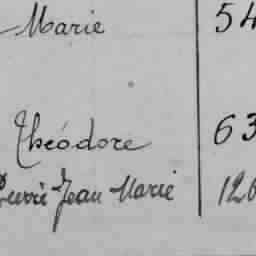 Marie 54
Théodore 63
Pierre Jean Marie 126